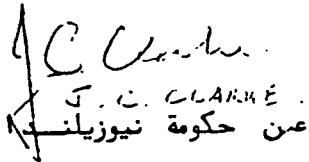 J. C. CLARKE.
عن حكومة نيوزيلندا